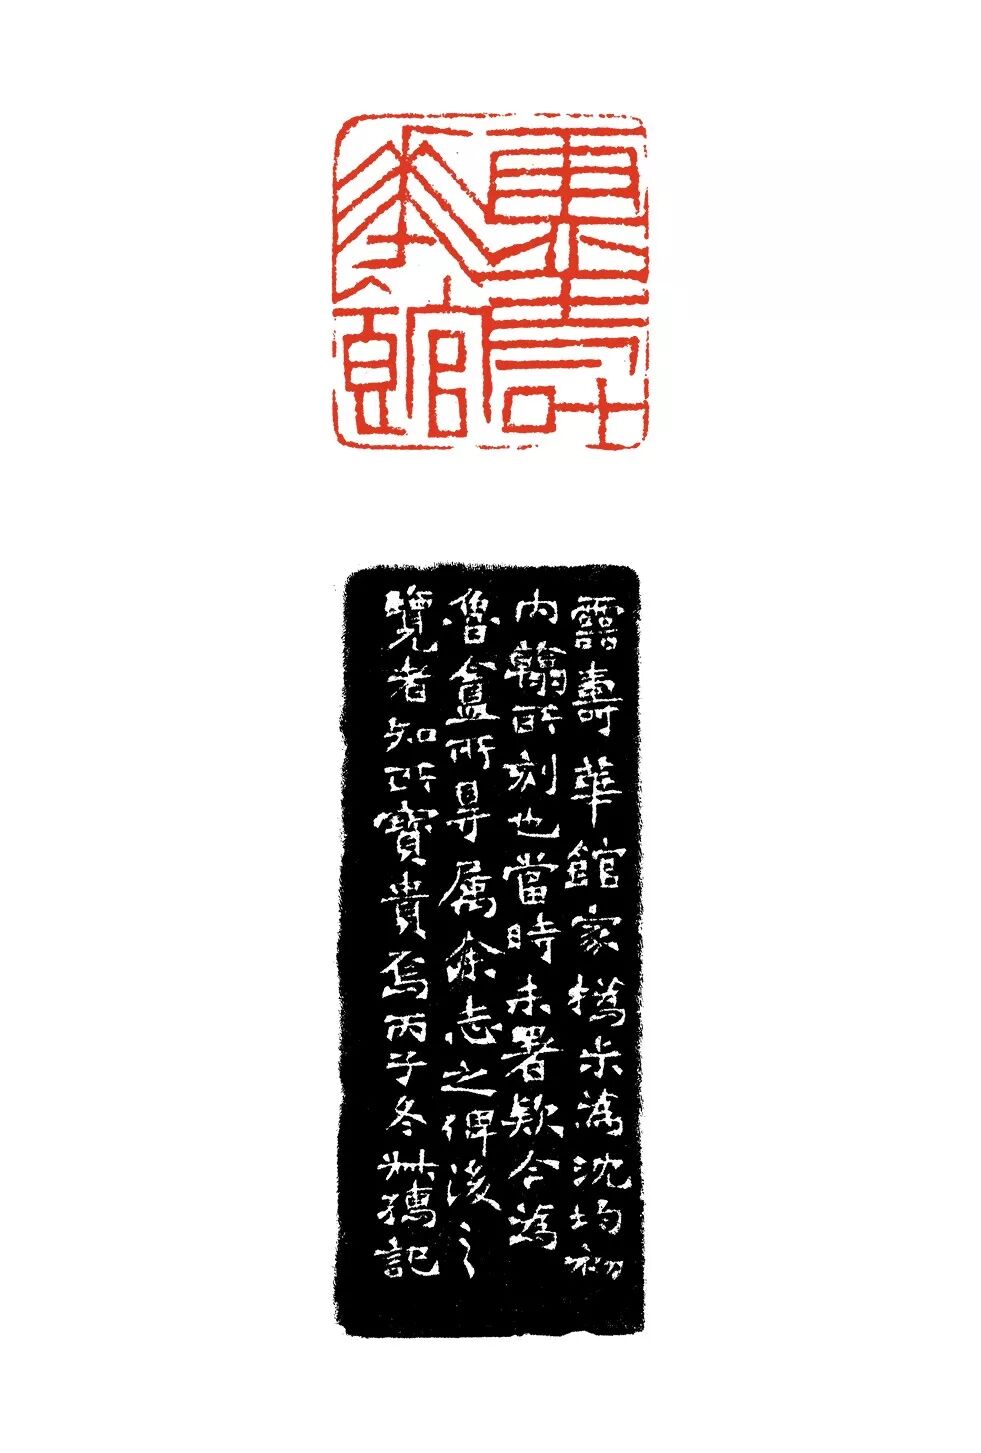 霝壽
華館
霝壽華館家撝尗為沈均初
内翰所刻也當時未署款今為
魯盦所得属余志之俾後之
覽者知所寶貴焉丙子冬尗孺記